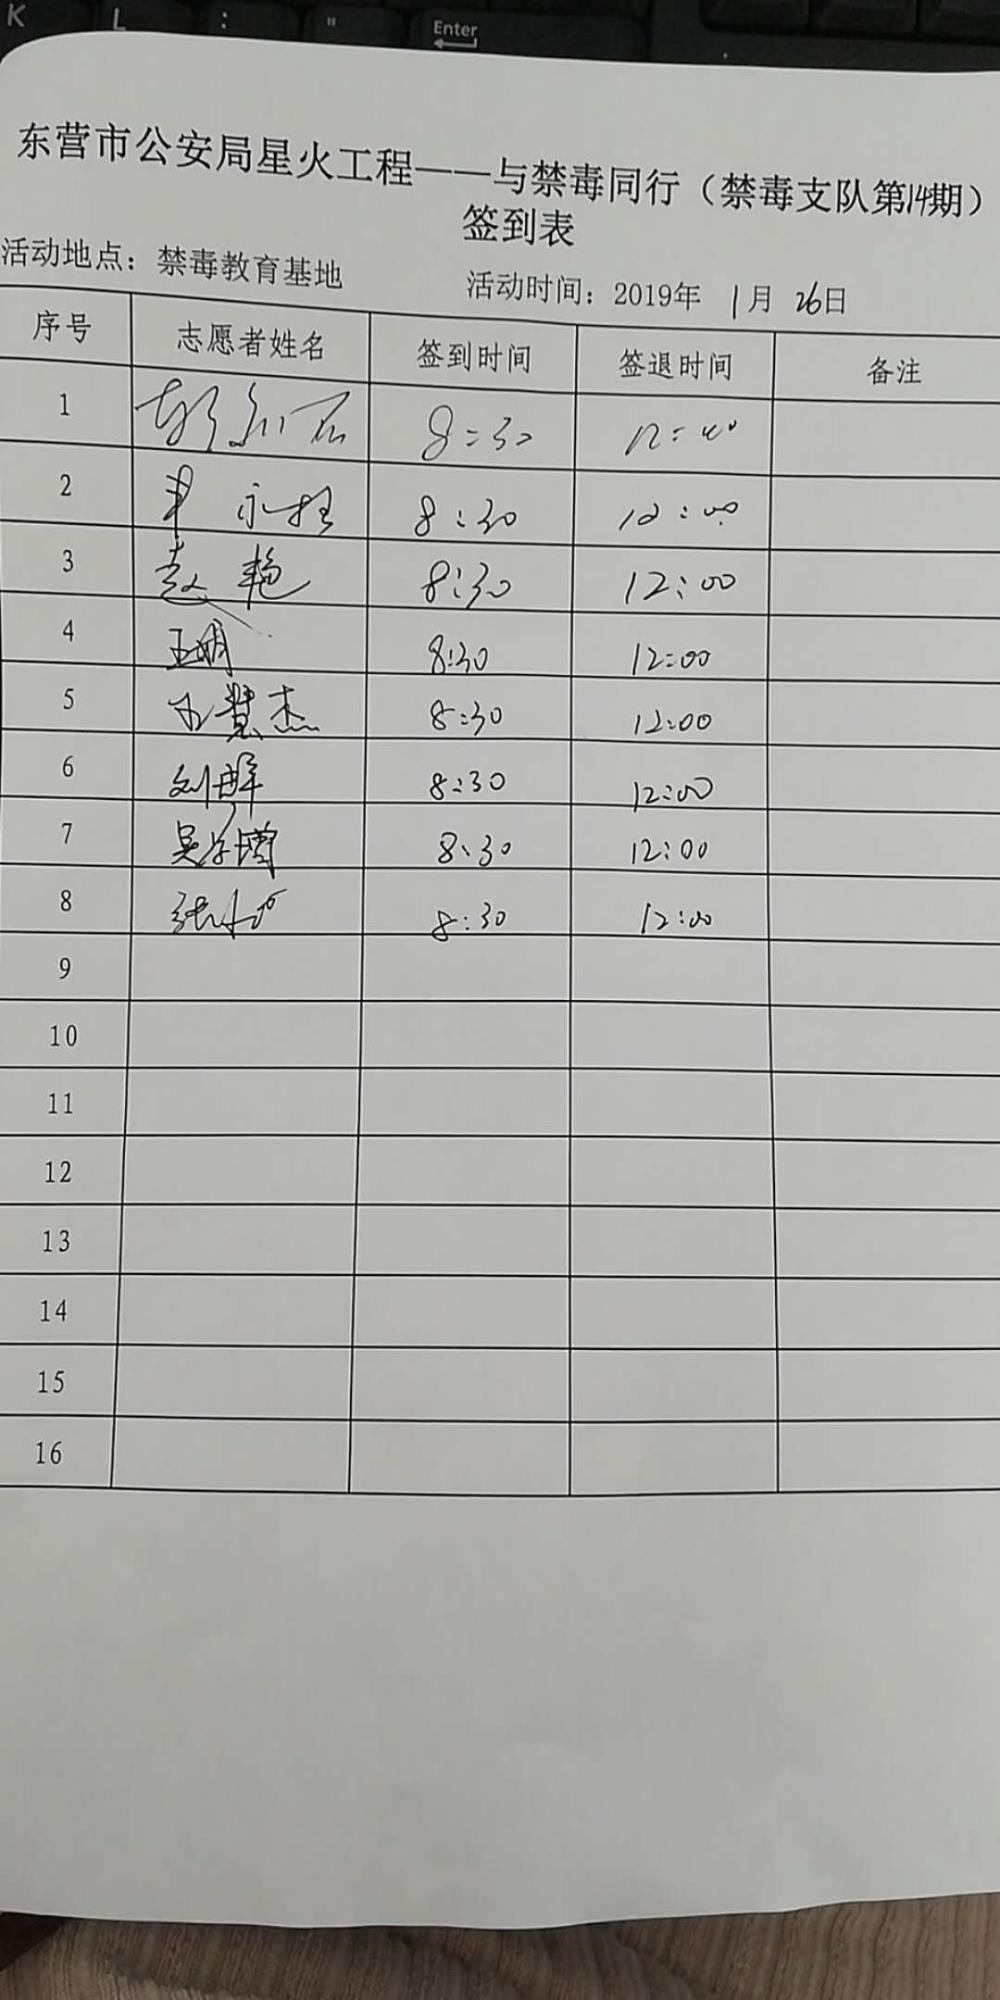 K L : " Enter
东营市公安局星火工程——与禁毒同行（禁毒支队第14期）
签到表
活动地点：禁毒教育基地 活动时间：2019年 1月 26日
序号 志愿者姓名 签到时间 签退时间 备注
1 8:30 12:00
2 8:30 12:00
3 赵艳 8:30 12:00
4 王明 8:30 12:00
5 慧杰 8:30 12:00
6 刘群 8:30 12:00
7 吴学增 8:30 12:00
8 张 8:30 12:00
9
10
11
12
13
14
15
16